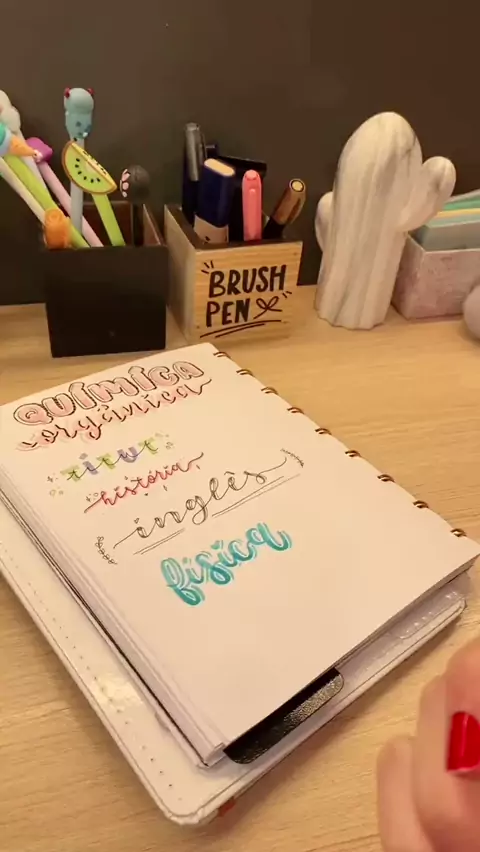 BRUSH
PEN
QUÍMICA
orgânica
história
inglês
física